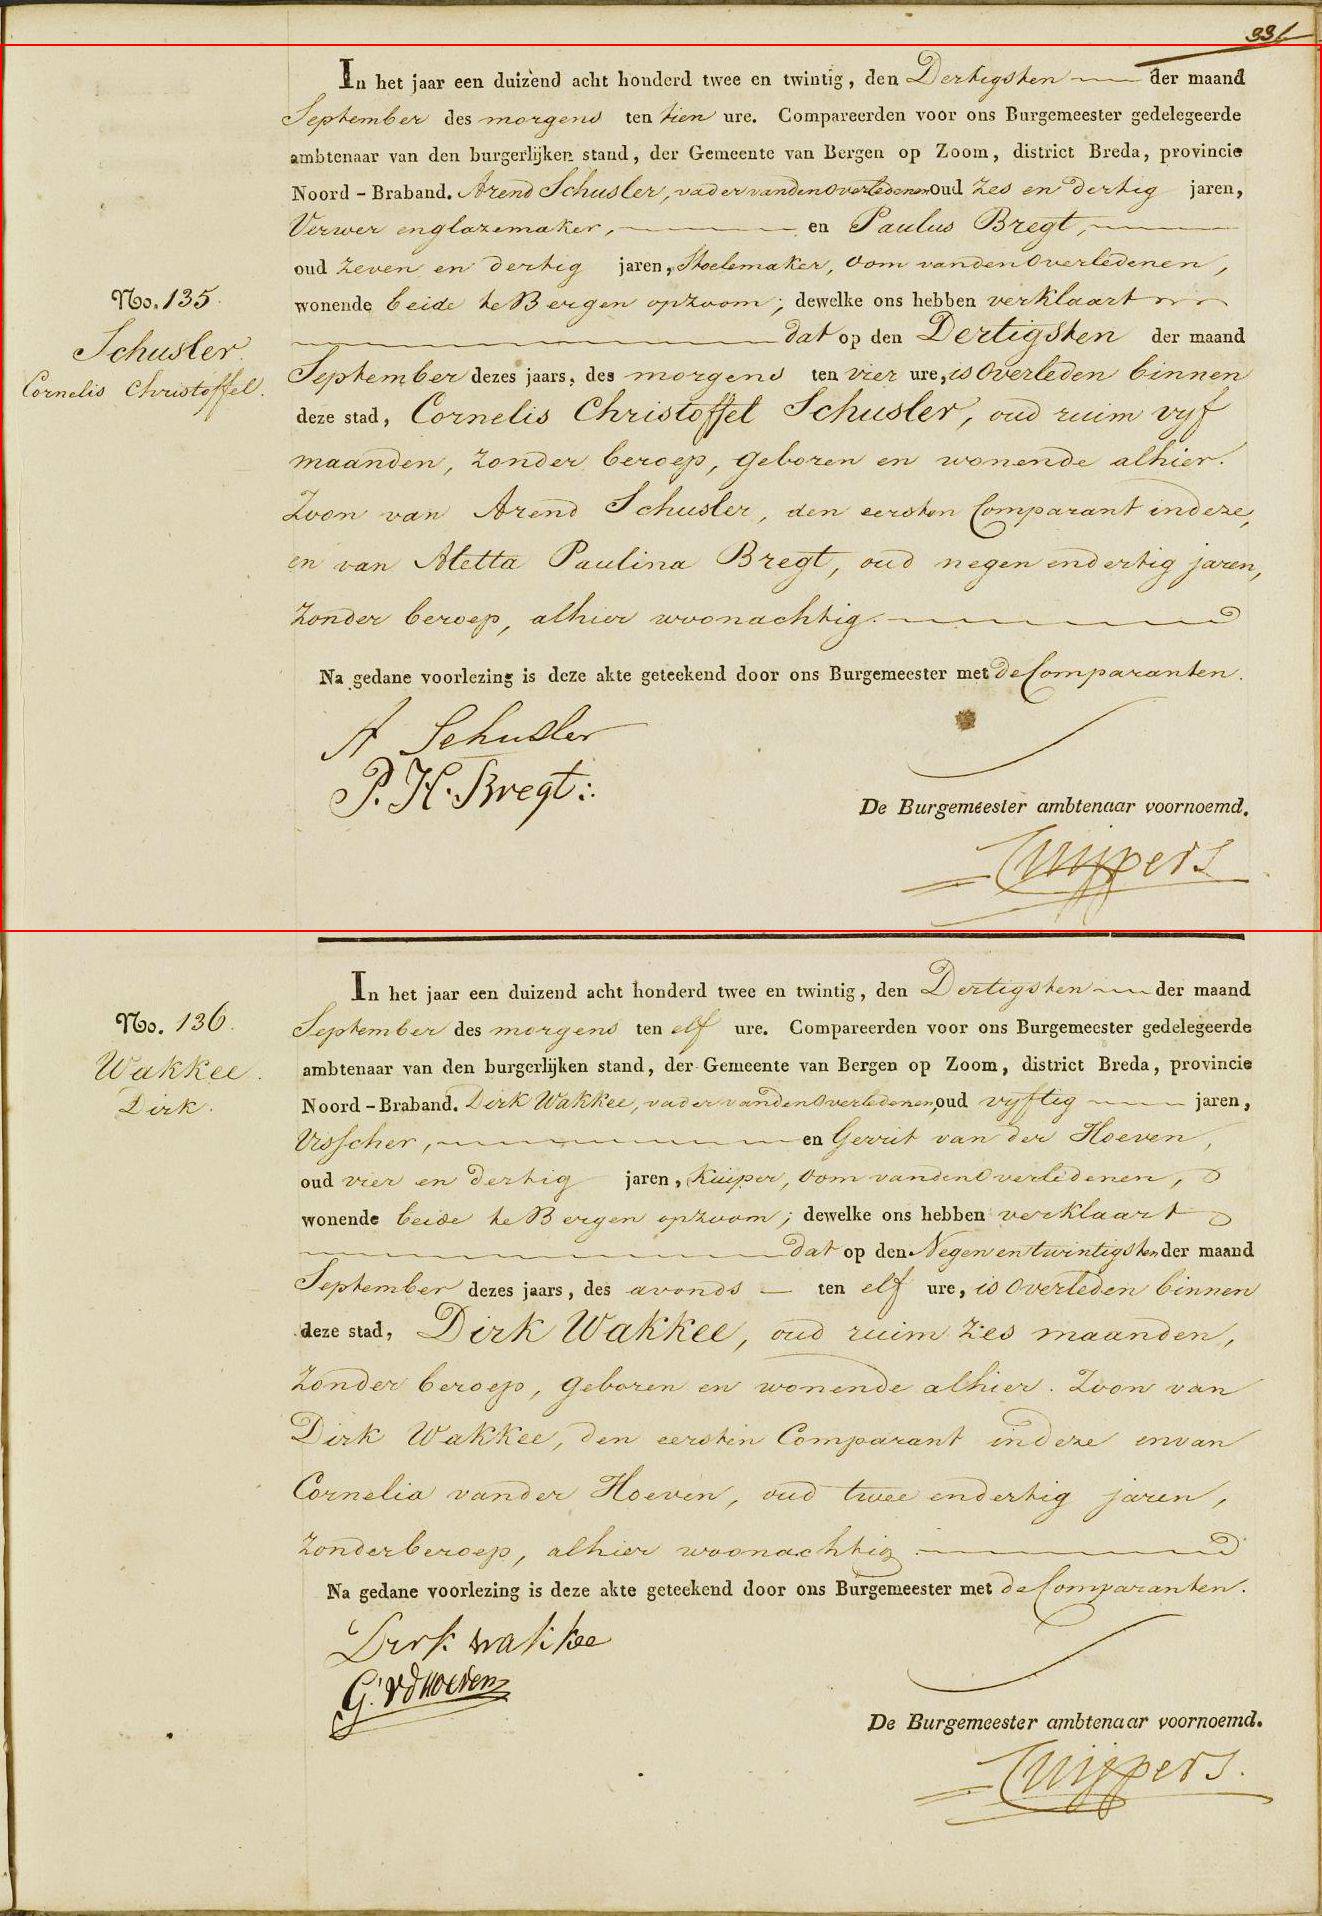 331
In het jaar een duizend acht honderd twee en twintig, den Dertigsten der maand
September des morgens ten tien ure. Compareerden voor ons Burgemeester gedelegeerde
ambtenaar van den burgerlijken stand, der Gemeente van Bergen op Zoom, district Breda, provincie
Noord-Braband. Arend Schusler, vader vanden Overledenen oud zes en dertig jaren,
Verwer englazemaker, en Paulus Bregt,
oud zeven en dertig jaren, Stoelemaker, Oom vanden Overledenen,
wonende beide te Bergen opzoom; dewelke ons hebben verklaart
dat op den Dertigsten der maand
September dezes jaars, des morgens ten vier ure, is Overleden binnen
deze stad, Cornelis Christoffel Schusler, oud ruim vyf
maanden, zonder beroep, geboren en wonende alhier.
Zoon van Arend Schusler, den eersten Comparant indeze,
en van Aletta Paulina Bregt, oud negen endertig jaren,
zonder beroep, alhier woonachtig.
Na gedane voorlezing is deze akte geteekend door ons Burgemeester met de Comparanten.
No. 135
Schusler.
Cornelis Christoffel.
A Schusler
P. H. Bregt:
De Burgemeester ambtenaar voornoemd.
Cuijpers
In het jaar een duizend acht honderd twee en twintig, den Dertigsten der maand
September des morgens ten elf ure. Compareerden voor ons Burgemeester gedelegeerde
ambtenaar van den burgerlijken stand, der Gemeente van Bergen op Zoom, district Breda, provincie
Noord-Braband. Dirk Wakkee, vader vanden Overledenen, oud vyftig jaren,
Visscher, en Gerrit van der Hoeven,
oud vier en dertig jaren, Kuiper, Oom vanden Overledenen,
wonende beide te Bergen opzoom; dewelke ons hebben verklaart
dat op den Negen en twintigsten der maand
September dezes jaars, des avonds ten elf ure, is Overleden binnen
deze stad, Dirk Wakkee, oud ruim zes maanden,
zonder beroep, geboren en wonende alhier. Zoon van
Dirk Wakkee, den eersten Comparant indeze envan
Cornelia vander Hoeven, oud twee endertig jaren,
zonderberoep, alhier woonachtig
Na gedane voorlezing is deze akte geteekend door ons Burgemeester met de Comparanten.
No. 136.
Wakkee.
Dirk.
Dirk wakkee
G. vd hoeven
De Burgemeester ambtenaar voornoemd.
Cuijpers.